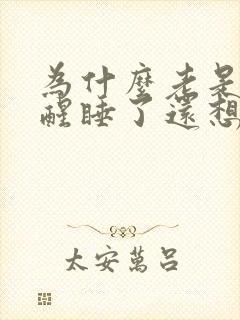 為什麼老是
醒睡了還想
太安萬呂